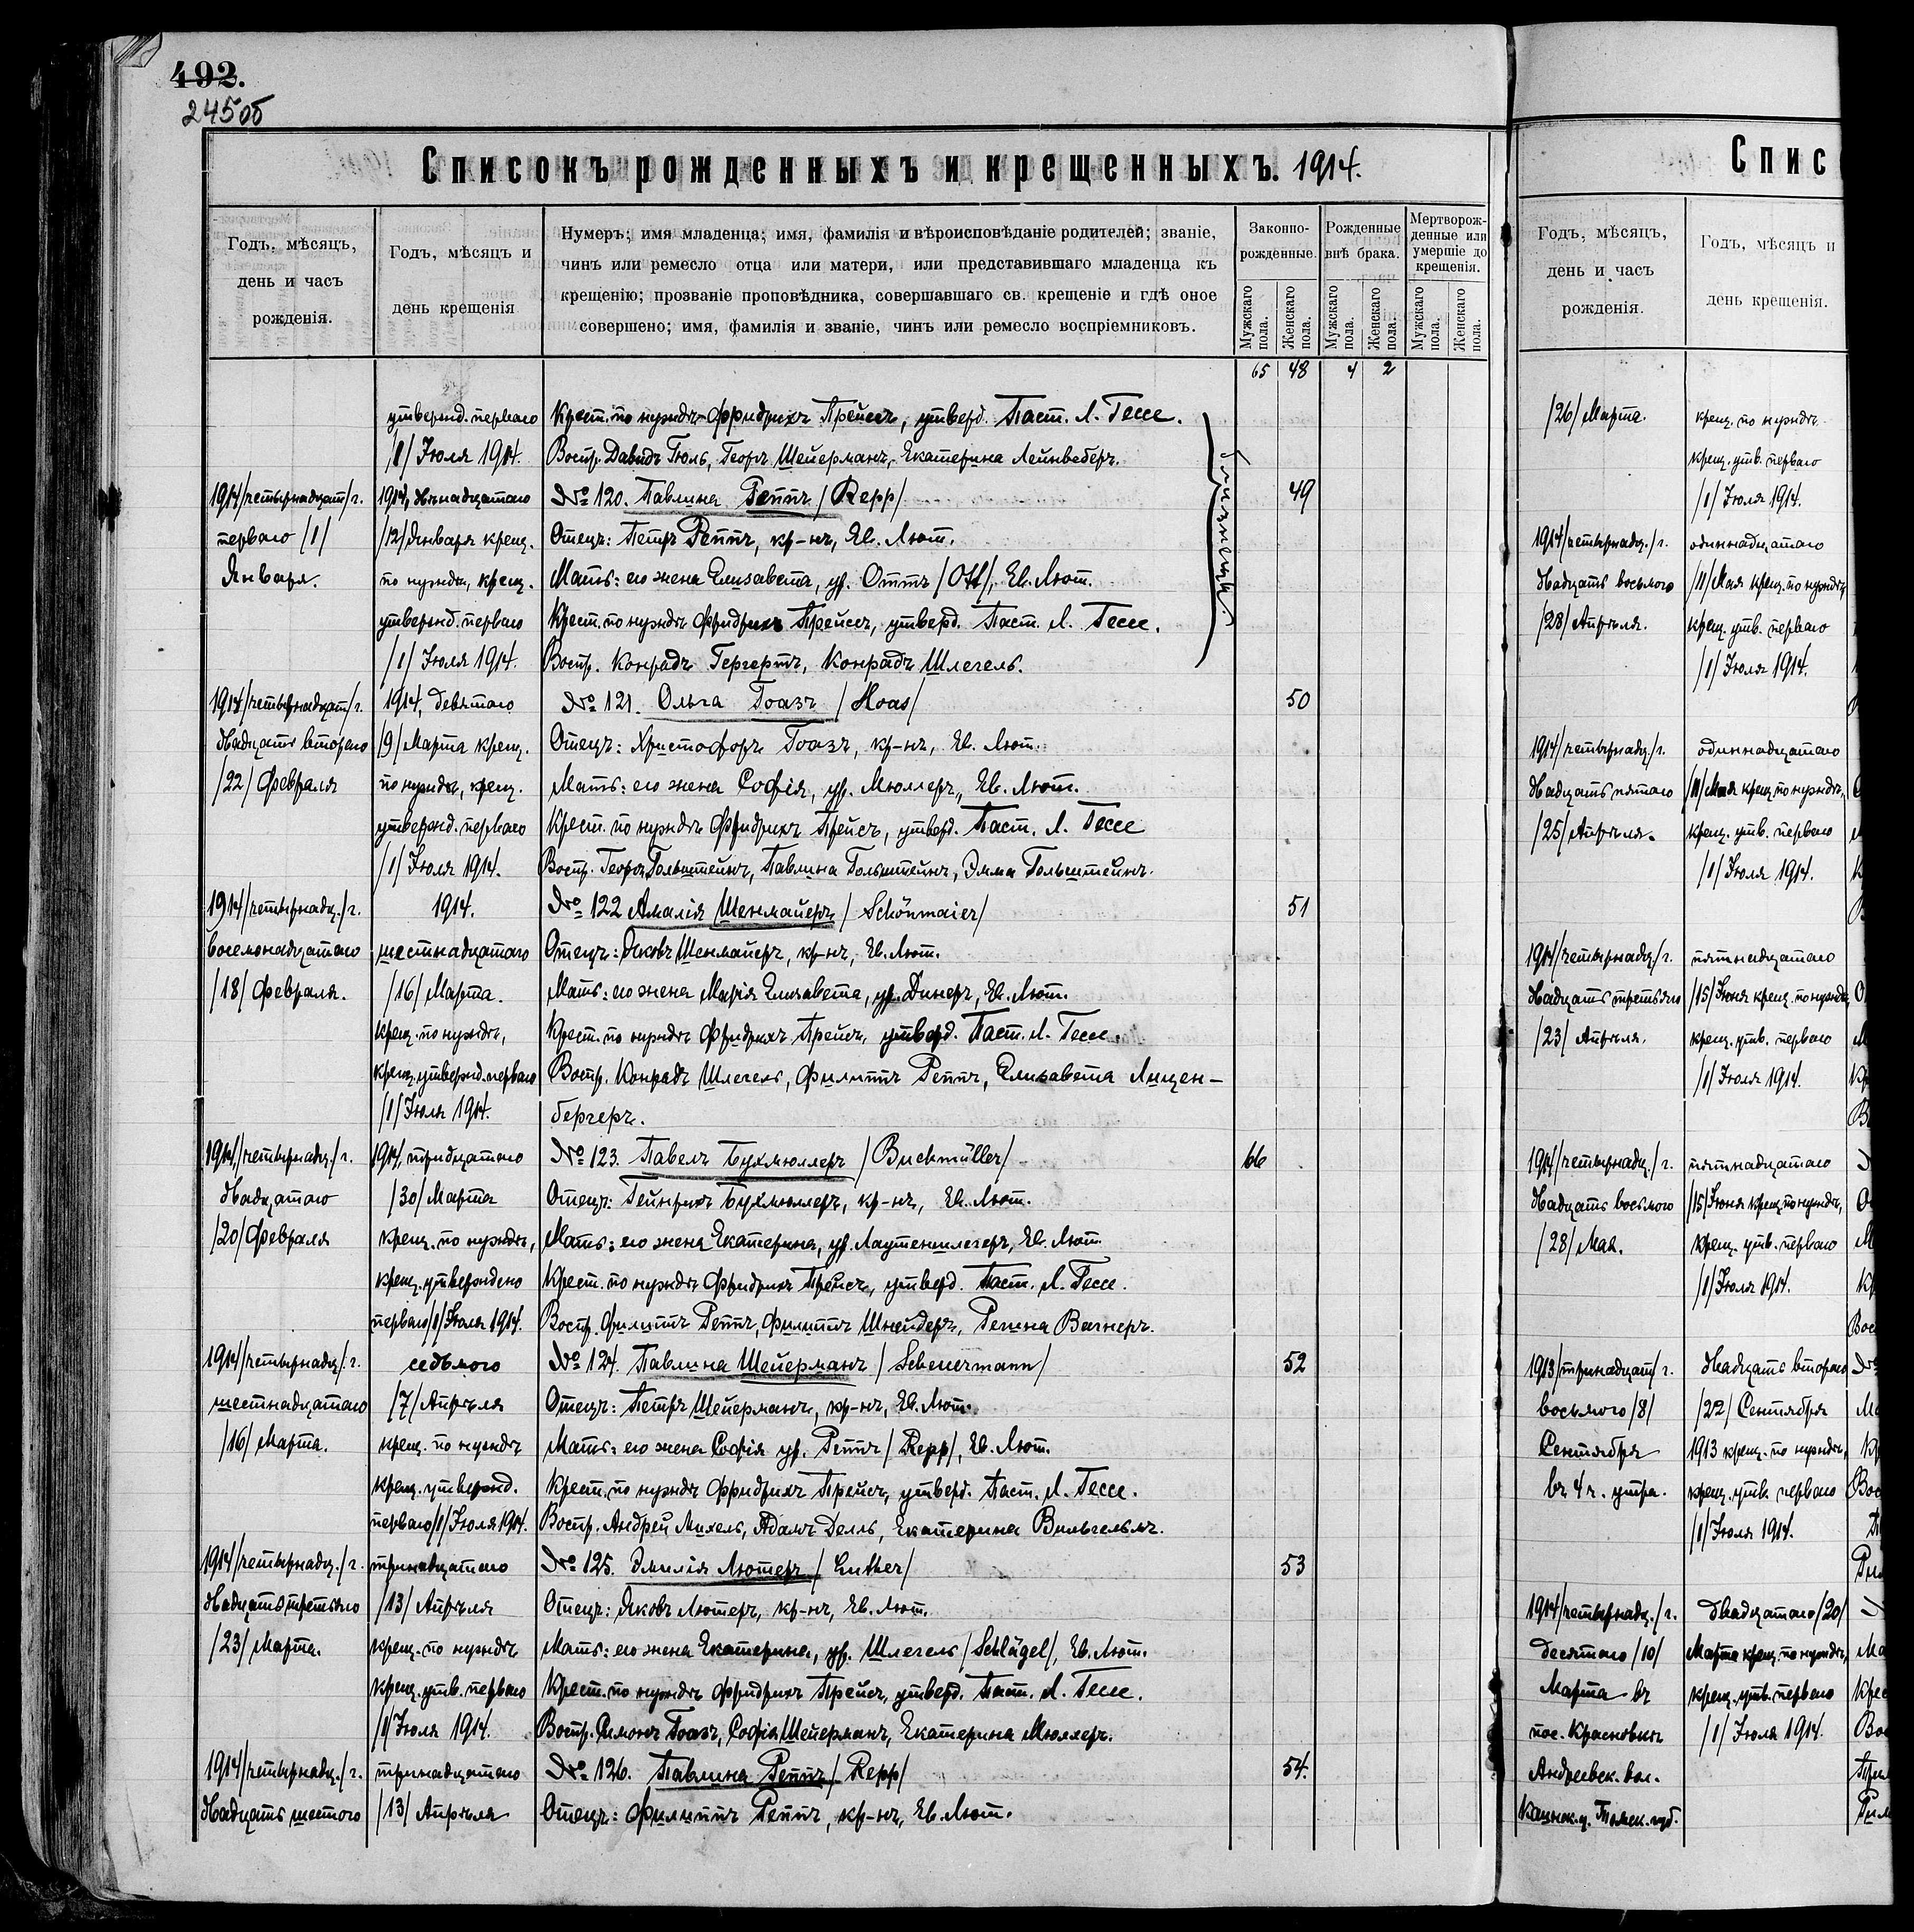 492.
245об
Списокъ рожденныхъ и крещенныхъ. 1914.
Годъ, мѣсяцъ, день и часъ рожденія.
Годъ, мѣсяцъ и день крещенія
Нумеръ; имя младенца; имя, фамилія и вѣроисповѣданіе родителей; званіе,
чинъ или ремесло отца или матери, или представившаго младенца къ
крещенію; прозваніе проповѣдника, совершавшаго св. крещеніе и гдѣ оное
совершено; имя, фамилія и званіе, чинъ или ремесло воспріемниковъ.
Законно-рожденные.
Рожденные внѣ брака.
Мертворож-денные или умершіе до крещенія.
Мужскаго пола. Женскаго пола. Мужскаго пола. Женскаго пола. Мужскаго пола. Женскаго пола.
65 48 4 2
утвержд. перваго Крест. по нуждѣ Фридрихъ Прейсъ, утверд. Паст. Л. Гессе.
/1/ Іюля 1914. Воспр. Давидъ Гюль, Георгъ Шейерманъ, Екатерина Лейнвеберъ.
1914/четырнадцат/г. 1914, двѣнадцатаго № 120. Павлина Реппъ /Repp/ 49
перваго /1/ /12/ Января крещ. Отецъ: Петръ Реппъ, кр-нъ, Ев. Лют.
Января. по нуждѣ, крещ. Мать: его жена Елизавета, ур. Оттъ /Ott/, Ев. Лют.
утвержд. перваго Крест. по нуждѣ Фридрихъ Прейсъ, утверд. Паст. Л. Гессе.
/1/ Іюля 1914. Воспр. Конрадъ Гергертъ, Конрадъ Шлегель.
1914/четырнадцат/г. 1914, девятаго № 121. Ольга Гоазъ /Hoas/ 50
двадцать второго /9/ Марта крещ. Отецъ: Христофоръ Гоазъ, кр-нъ, Ев. Лют.
/22/ Февраля по нуждѣ, крещ. Мать: его жена Софія, ур. Мюллеръ, Ев. Лют.
утвержд. перваго Крест. по нуждѣ Фридрихъ Прейсъ, утверд. Паст. Л. Гессе
/1/ Іюля 1914. Воспр. Георгъ Гольштейнъ, Павлина Гольштейнъ, Эмма Гольштейнъ.
1914/четырнадц./г. 1914. № 122 Амалія Шенмайеръ /Schönmaier/ 51
восемнадцатаго шестнадцатаго Отецъ: Яковъ Шенмайеръ, кр-нъ, Ев. Лют.
/18/ Февраля. /16/ Марта. Мать: его жена Марія Елизавета, ур. Динеръ, Ев. Лют.
крещ. по нуждѣ, Крест. по нуждѣ Фридрихъ Прейсъ, утверд. Паст. Л. Гессе.
крещ. утвержд. перваго Воспр. Конрадъ Шлегель, Филиппъ Реппъ, Елизавета Лицен-
/1/ Іюля 1914. бергеръ.
1914/четырнадц./г. 1914, тридцатаго № 123. Павелъ Бухмюллеръ /Buchmüller/ 66
двадцатаго /30/ Марта Отецъ: Гейнрихъ Бухмюллеръ, кр-нъ, Ев. Лют.
/20/ Февраля крещ. по нуждѣ, Мать: его жена Екатерина, ур. Лаутеншлегеръ, Ев. Лют.
крещ. утверждено Крест. по нуждѣ Фридрихъ Прейсъ, утверд. Паст. Л. Гессе.
перваго /1/ Іюля 1914. Воспр. Филиппъ Реппъ, Филиппъ Шнейдеръ, Регина Вагнеръ.
1914/четырнадц./г. седьмого № 124. Павлина Шейерманъ /Scheuermann/ 52
шестнадцатаго /7/ Апрѣля Отецъ: Петръ Шейерманъ, кр-нъ, Ев. Лют.
/16/ Марта. крещ. по нуждѣ Мать: его жена Софія ур. Реппъ /Repp/, Ев. Лют.
крещ. утвержд. Крест. по нуждѣ Фридрихъ Прейсъ, утверд. Паст. Л. Гессе.
перваго /1/ Іюля 1914. Воспр. Андрей Михель, Адамъ Делль, Екатерина Вильгельмъ.
1914/четырнадц./г. тринадцатаго № 125. Эмилія Лютеръ /Luther/ 53
двадцать третьяго /13/ Апрѣля Отецъ: Яковъ Лютеръ, кр-нъ, Ев. Лют.
/23/ Марта. крещ. по нуждѣ Мать: его жена Екатерина, ур. Шлегель /Schlägel/, Ев. Лют.
крещ. утв. перваго Крест. по нуждѣ Фридрихъ Прейсъ, утверд. Паст. Л. Гессе.
/1/ Іюля 1914. Воспр. Симонъ Гоазъ, Софія Шейерманъ, Екатерина Мюллеръ.
1914/четырнадц./г. тринадцатаго № 126. Павлина Реппъ /Repp/ 54.
двадцать шестого /13/ Апрѣля Отецъ: Филиппъ Реппъ, кр-нъ, Ев. Лют.
Спис
Годъ, мѣсяцъ, день и часъ рожденія.
Годъ, мѣсяцъ и день крещенія.
/26/ Марта. крещ. по нуждѣ
крещ. утв. перваго
/1/ Іюля 1914.
1914/четырнадц./г. одиннадцатаго
двадцать восьмого /11/ Мая крещ. по нуждѣ,
/28/ Апрѣля. крещ. утв. перваго
/1/ Іюля 1914.
1914/четырнадц./г. одиннадцатаго
двадцать пятаго /11/ Мая крещ. по нуждѣ,
/25/ Апрѣля. крещ. утв. перваго
/1/ Іюля 1914.
1914/четырнадц./г. пятнадцатаго
двадцать третьяго /15/ Іюня крещ. по нуждѣ
/23/ Апрѣля. крещ. утв. перваго
/1/ Іюля 1914.
1914/четырнадц./г. пятнадцатаго
двадцать восьмого /15/ Іюня крещ. по нуждѣ,
/28/ Мая. крещ. утв. перваго
/1/ Іюля 1914.
1913/тринадцат/г. двадцать второго
восьмого /8/ /22/ Сентября
Сентября 1913 крещ. по нуждѣ,
въ 4 ч. утра. крещ. утв. перваго
/1/ Іюля 1914.
1914/четырнадц./г. двадцатаго /20/
десятаго /10/ Марта крещ. по нуждѣ,
Марта въ крещ. утв. перваго
пос. Красновкѣ /1/ Іюля 1914.
Андреевск. вол.
Томск. губ.